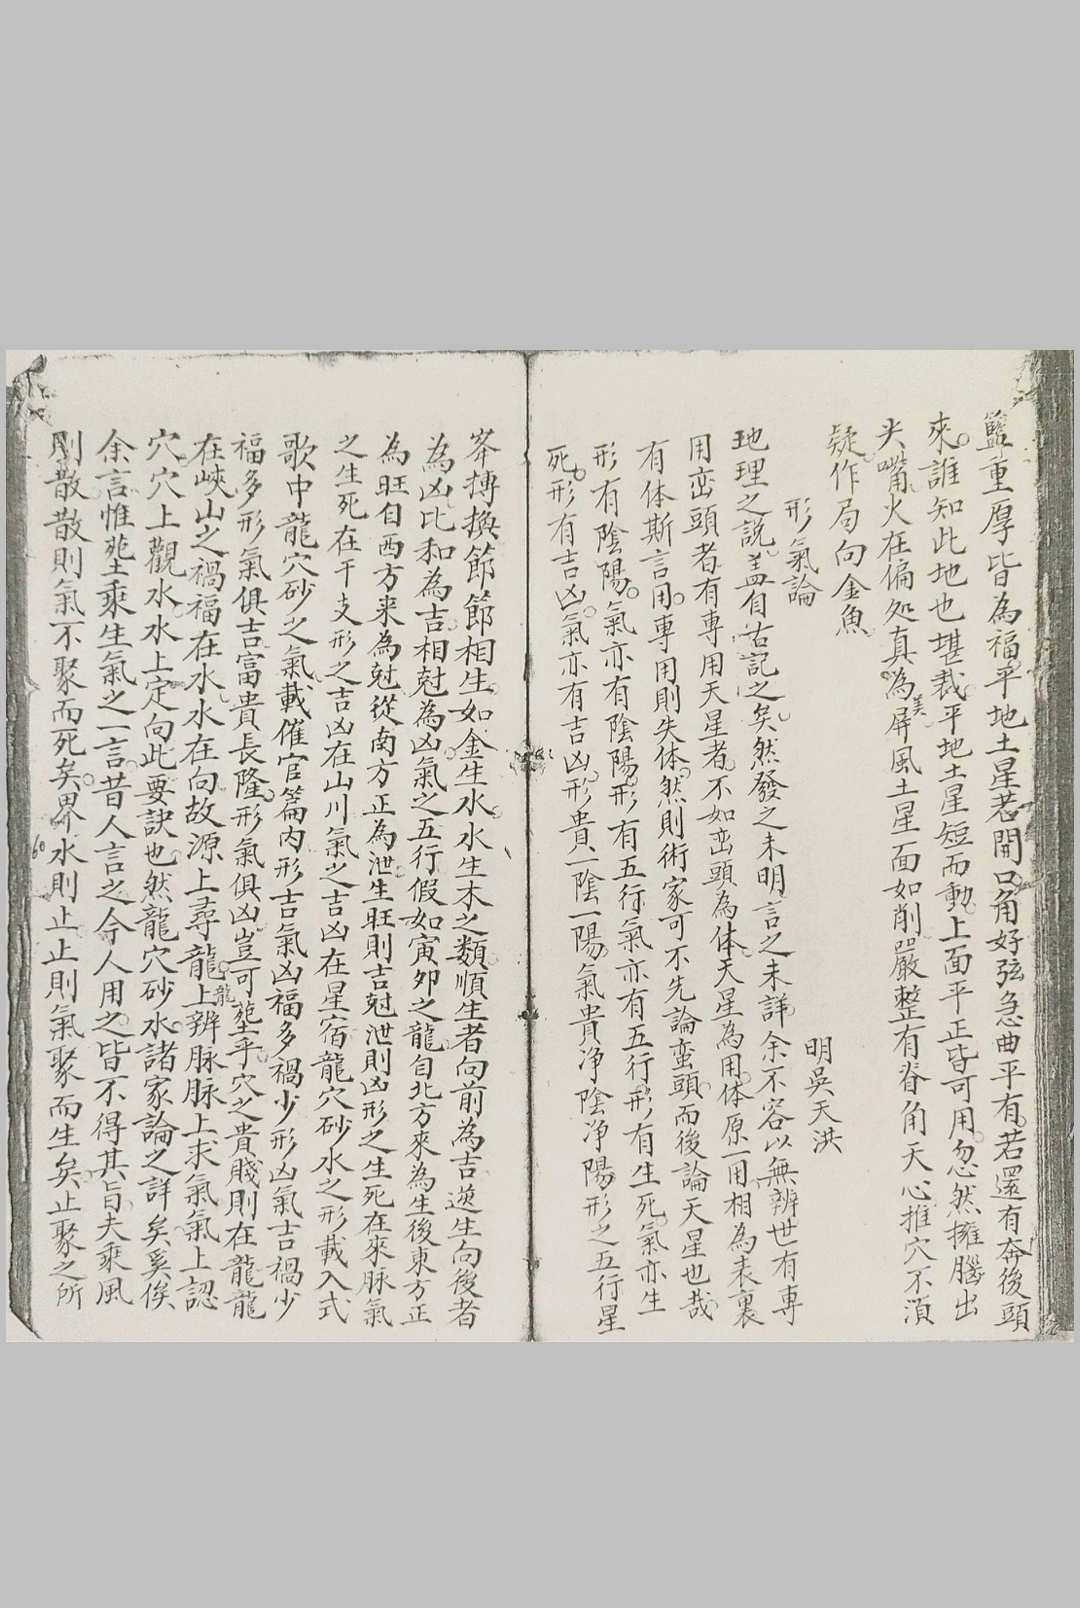 籃重厚皆為福平地土星若開口角好弦急曲平有若還有奔後頭
來誰知此地也堪裁平地土星短而動上面平正皆可用忽然擁腦出
尖嘴火在偏处真為美屏風土星面如削嚴整有脊角天心推穴不湏
疑作局向金魚
形氣論
明吳天洪
地理之說盖自古記之矣然發之未明言之未詳余不容以無辨世有專
用巒頭者有專用天星者不如巒頭為体天星為用体原一用相為表裏
有体斯言用專用則失体然則術家可不先論蛮頭而後論天星也哉
形有陰陽氣亦有陰陽形有五行氣亦有五行形有生死氣亦生
死形有吉凶氣亦有吉凶形貴一陰一陽氣貴净陰净陽形之五行星
峯摶換節節相生如金生水水生木之類順生者向前為吉逆生向後者
為凶比和為吉相尅為凶氣之五行假如寅夘之龍自北方來為生後東方正
為旺自西方来為尅從南方正為泄生旺則吉尅泄則凶形之生死在來脉氣
之生死在干支形之吉凶在山川氣之吉凶在星宿龍穴砂水之形載入式
歌中龍穴砂之氣載催官篇内形吉氣凶福多禍少形凶氣吉禍少
福多形氣俱吉富貴長隆形氣俱凶豈可塟乎穴之貴賤則在龍龍
在峽山之禍福在水水在向故源上尋龍龍上辨脉脉上求氣氣上認
穴穴上觀水水上定向此要訣也然龍穴砂水諸家論之詳矣奚俟
余言惟塟乘生氣之一言昔人言之今人用之皆不得其旨夫乘風
則散散則氣不聚而死矣界水則止止則氣聚而生矣止聚之所
60